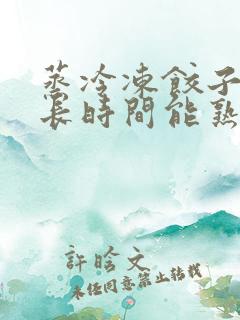 蒸冷凍餃子
長時間能熟
許晗文
未經同意禁止轉載